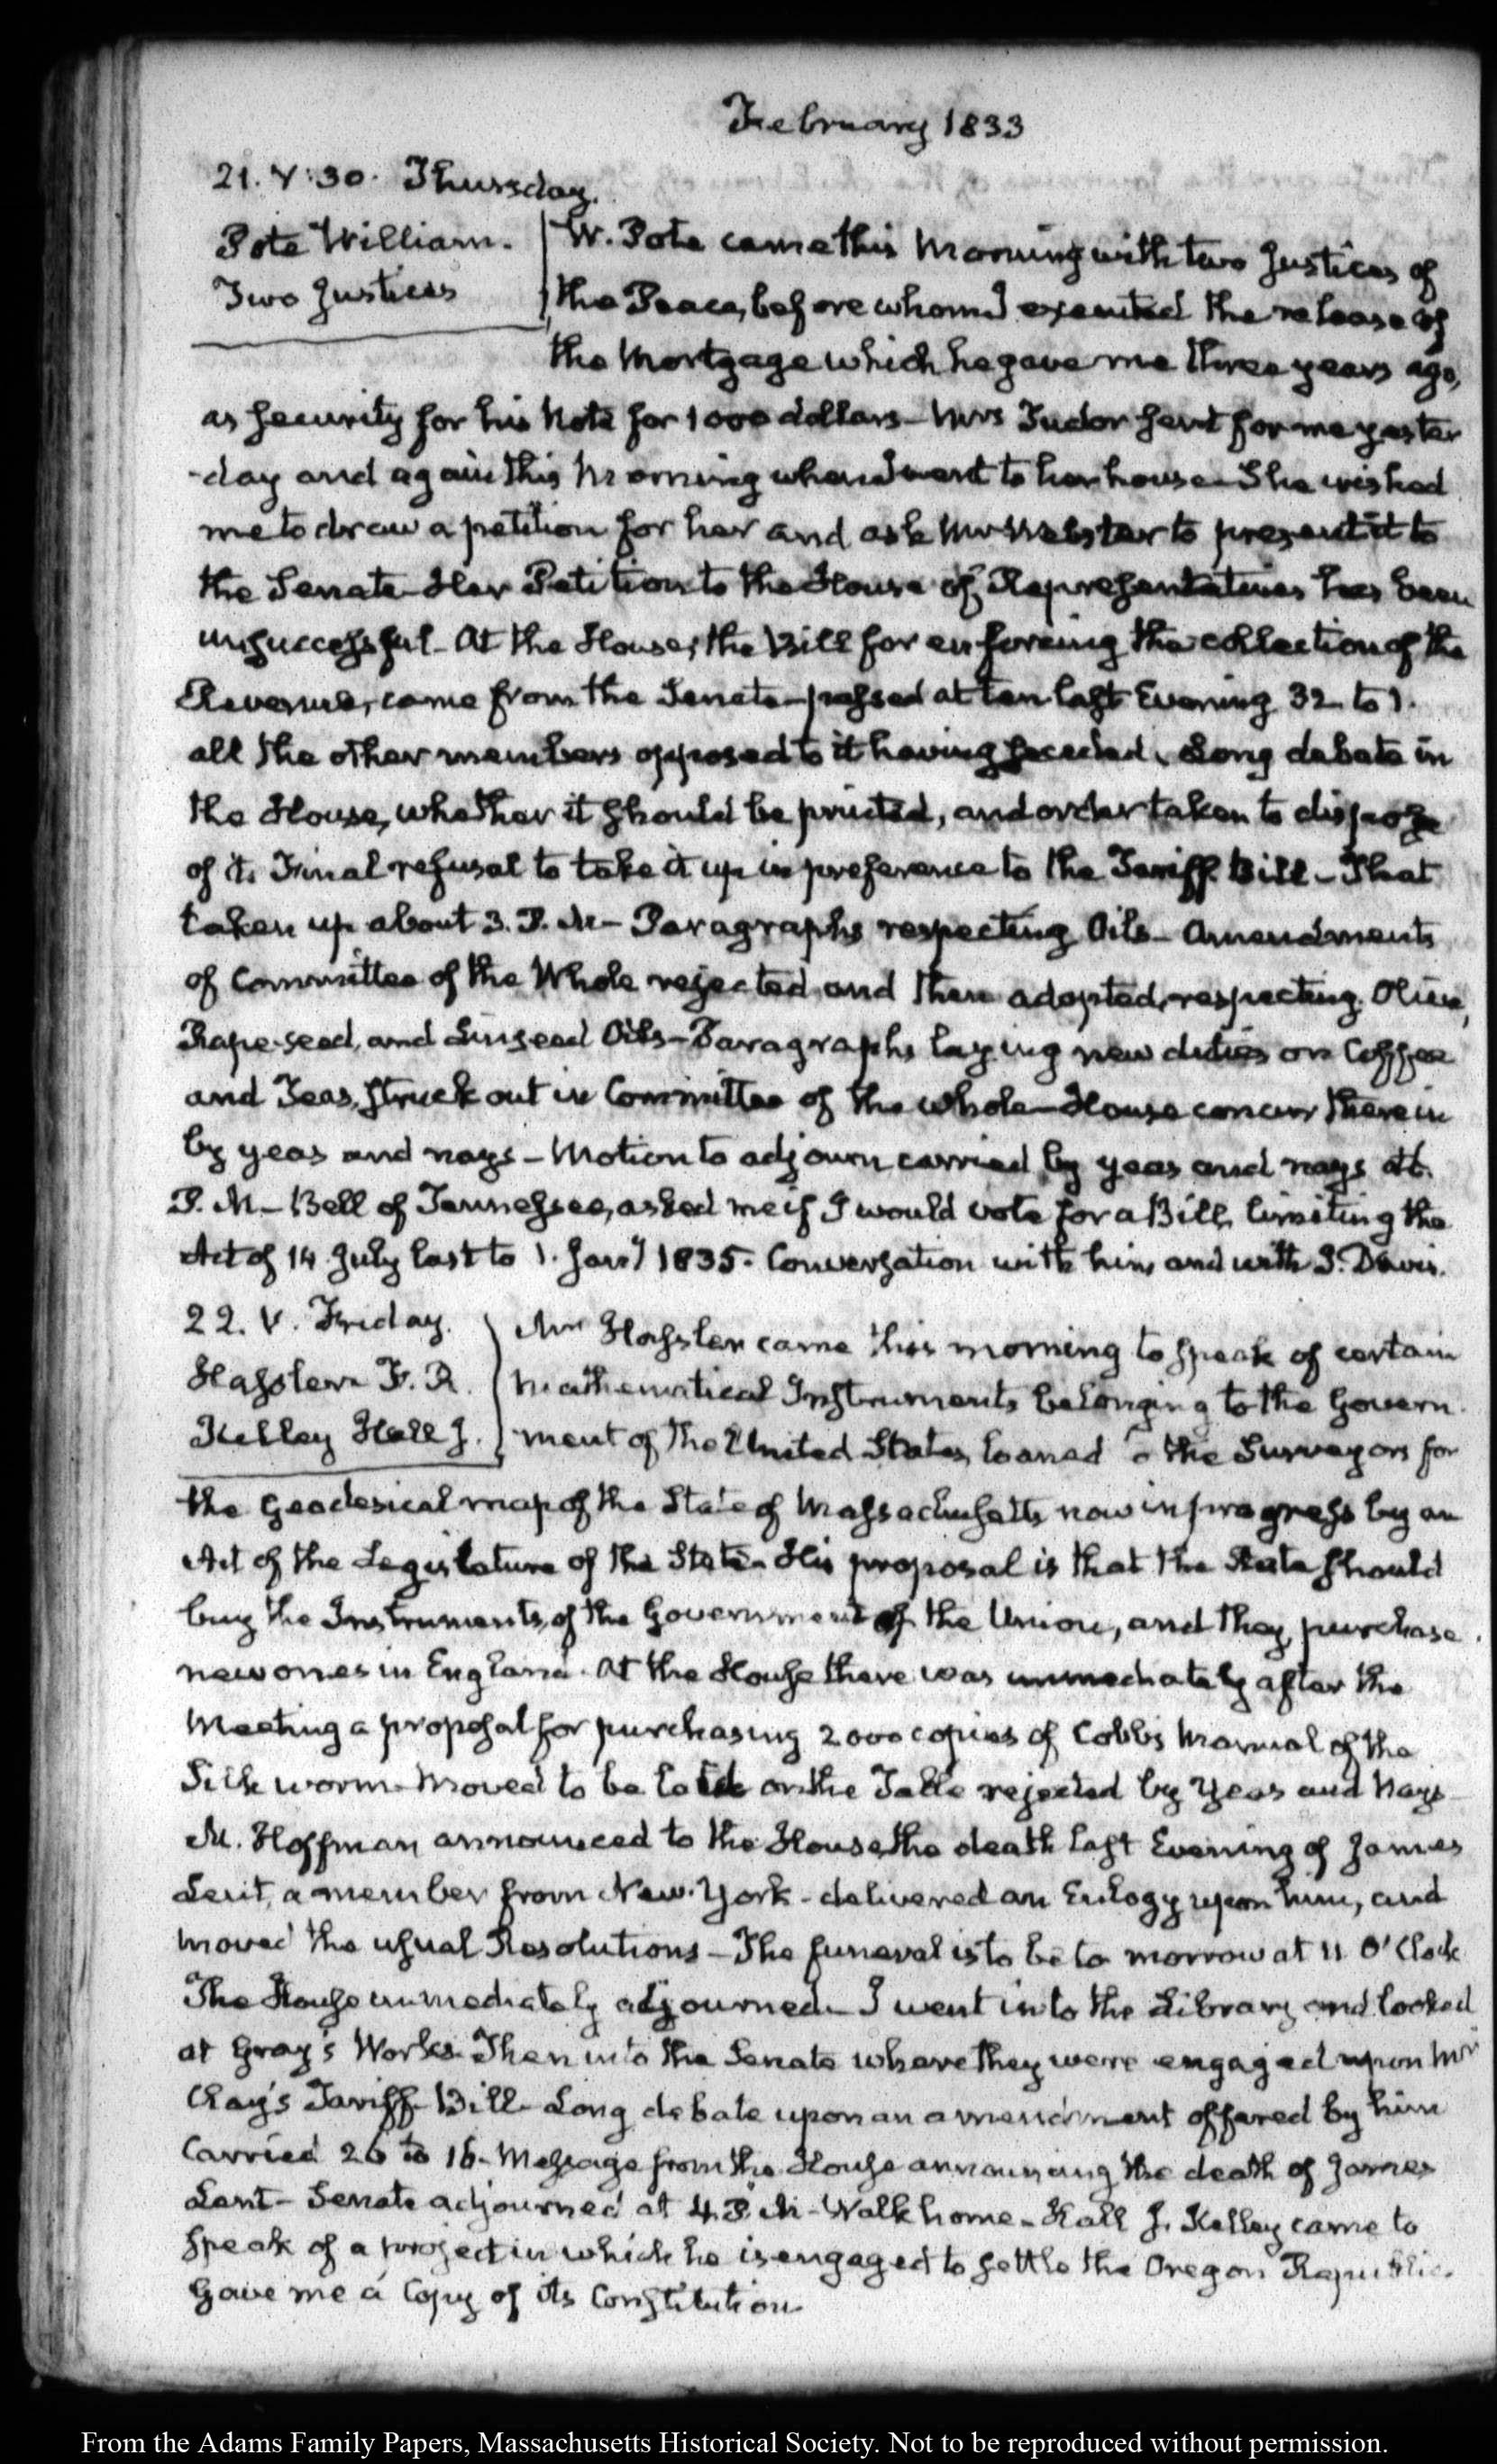 February 1833
21. V:30. Thursday.
Pote William.
Two Justices
W. Pote came this Morning with two Justices of
the Peace, before whom I executed the release of
the Mortgage which he gave me three years ago,
as security for his Note for 1000 dollars— Mrs Tudor sent for me yester
-day and again this Morning when I went to her house— She wished
me to draw a petition for her and ask Mr Webster to present it to
the Senate— Her Petition to the House of Representatives has been
unsuccessful— At the House, the Bill for enforcing the collection of the
Revenue, came from the Senate— passed at ten last Evening 32 to 1.
all the other members opposed to it having seceded. Long debate in
the House, whether it should be printed, and order taken to dispose
of it. Final refusal to take it up in preference to the Tariff Bill— That
taken up about 3. P. M— Paragraphs respecting Oils— Amendments
of Committee of the Whole rejected and then adopted, respecting Olive,
Rape-seed, and Linseed Oils— Paragraphs laying new duties on Coffee
and Teas, struck out in Committee of the whole— House concur therein
by yeas and nays— Motion to adjourn carried by yeas and nays at
P. M— Bell of Tennessee, asked me if I would vote for a Bill, limiting the
Act of 14 July last to 1. Jany 1835. Conversation with him and with J. Davis.
22. V. Friday.
Hassler F. R.
Kelley Hall J.
Mr Hassler came this morning to speak of certain
mathematical Instruments belonging to the Govern
ment of the United States, loaned to the Surveyors for
the Geodesical map of the State of Massachusetts now in progress by an
Act of the Legislature of the State— His proposal is that the State should
buy the Instruments, of the Government of the Union, and they purchase
new ones in England. At the House there was immediately after the
Meeting a proposal for purchasing 2000 copies of Cobb's Manual of the
Silk worm— Moved to be laid on the Table rejected by Yeas and Nays—
M. Hoffman announced to the House, the death last Evening of James
Lent, a member from New-York— delivered an Eulogy upon him, and
moved the usual Resolutions— The funeral is to be to morrow at 11 O'Clock
The House immediately adjourned— I went into the Library and looked
at Gray's Works. Then into the Senate where they were engaged upon Mr
Clay's Tariff Bill— Long debate upon an amendment offered by him
Carried 26 to 16— Message from the House announcing the death of James
Lent— Senate adjourned at 4. P. M— Walk home— Hall J. Kelley came to
speak of a project in which he is engaged to settle the Oregon Republic.
Gave me a Copy of its Constitution—
From the Adams Family Papers, Massachusetts Historical Society. Not to be reproduced without permission.